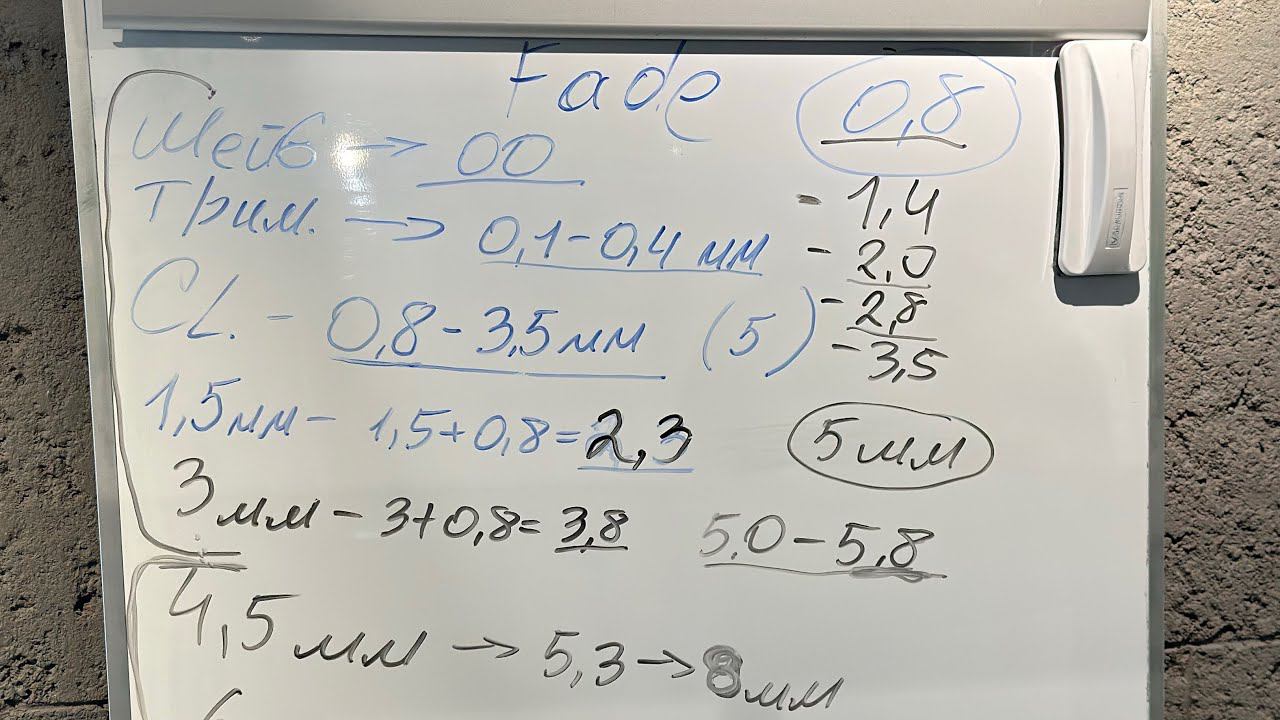 Fade
0,8
Шейв → 00
Трим. → 0,1-0,4 мм
CL. - 0,8-3,5мм (5)
- 1,4
- 2,0
- 2,8
- 3,5
1,5мм - 1,5+0,8=2,3
5мм
3мм - 3+0,8=3,8
5,0-5,8
4,5мм → 5,3 → 8мм